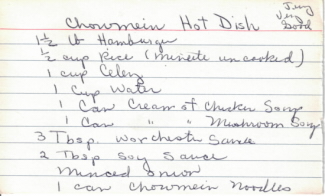 Very
Very
Good
Chowmein Hot Dish
1 1/2 lb Hamburger
1/2 cup Rice (minute uncooked)
1 cup Celery
1 Cup Water
1 Can Cream of Chicken Soup
1 Can " " Mushroom Soup
3 Tbsp. Worchester Sauce
2 Tbsp Soy Sauce
Minced onion
1 can Chowmein Noodles